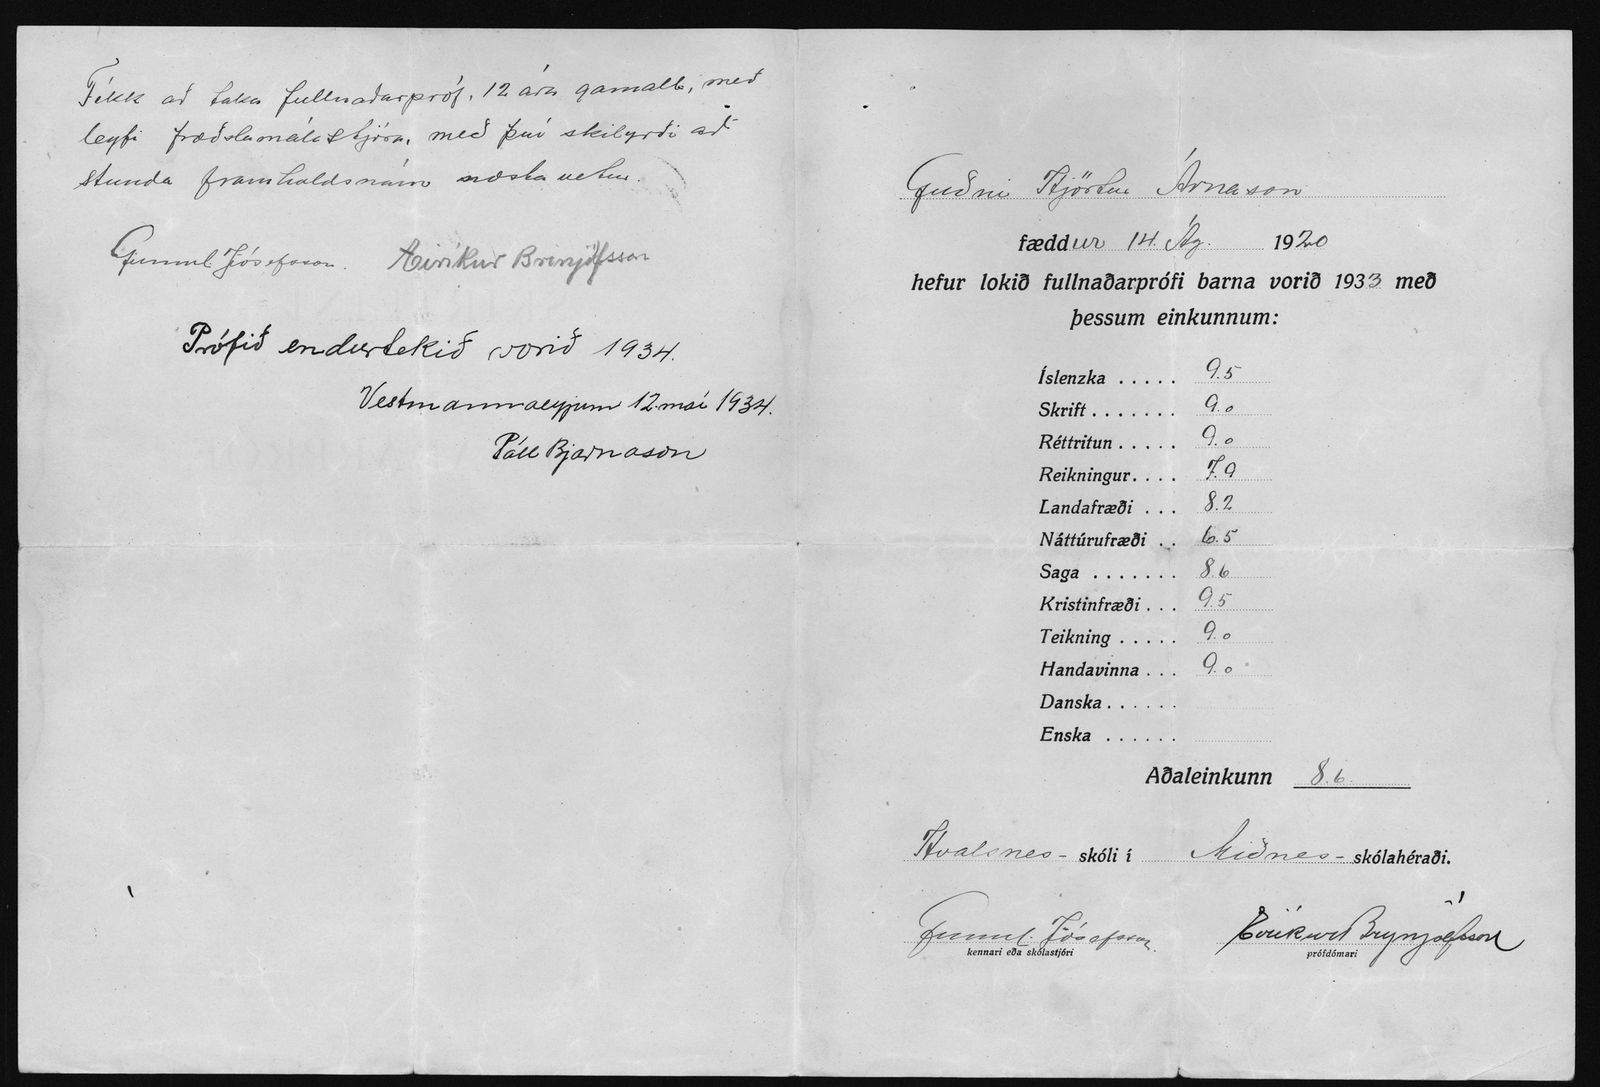 Fékk að taka fullnaðarpróf, 12 ára gamall, með
leyfi fræðslumálastjóra, með því skilyrði að
stunda framhaldsnám næsta vetur.
Gunnl. Jósefsson. Eiríkur Brinjólfsson
Prófið endurtekið vorið 1934.
Vestmannaeyjum 12. maí 1934.
Páll Bjarnason
Guðni Hjörtur Árnason
fæddur 14. Ág. 1920
hefur lokið fullnaðarprófi barna vorið 1933 með
þessum einkunnum:
Íslenzka ..... 9.5
Skrift ....... 9.0
Réttritun ..... 9.0
Reikningur.... 7.9
Landafræði ... 8.2
Náttúrufræði .. 6.5
Saga ....... 8.6
Kristinfræði ... 9.5
Teikning ..... 9.0
Handavinna ... 9.0
Danska ......
Enska ......
Aðaleinkunn 8.6
Hvalsnes- skóli í Miðnes- skólahéraði.
Gunnl. Jósefsson. Eiríkur Brynjólfsson
kennari eða skólastjóri prófdómari